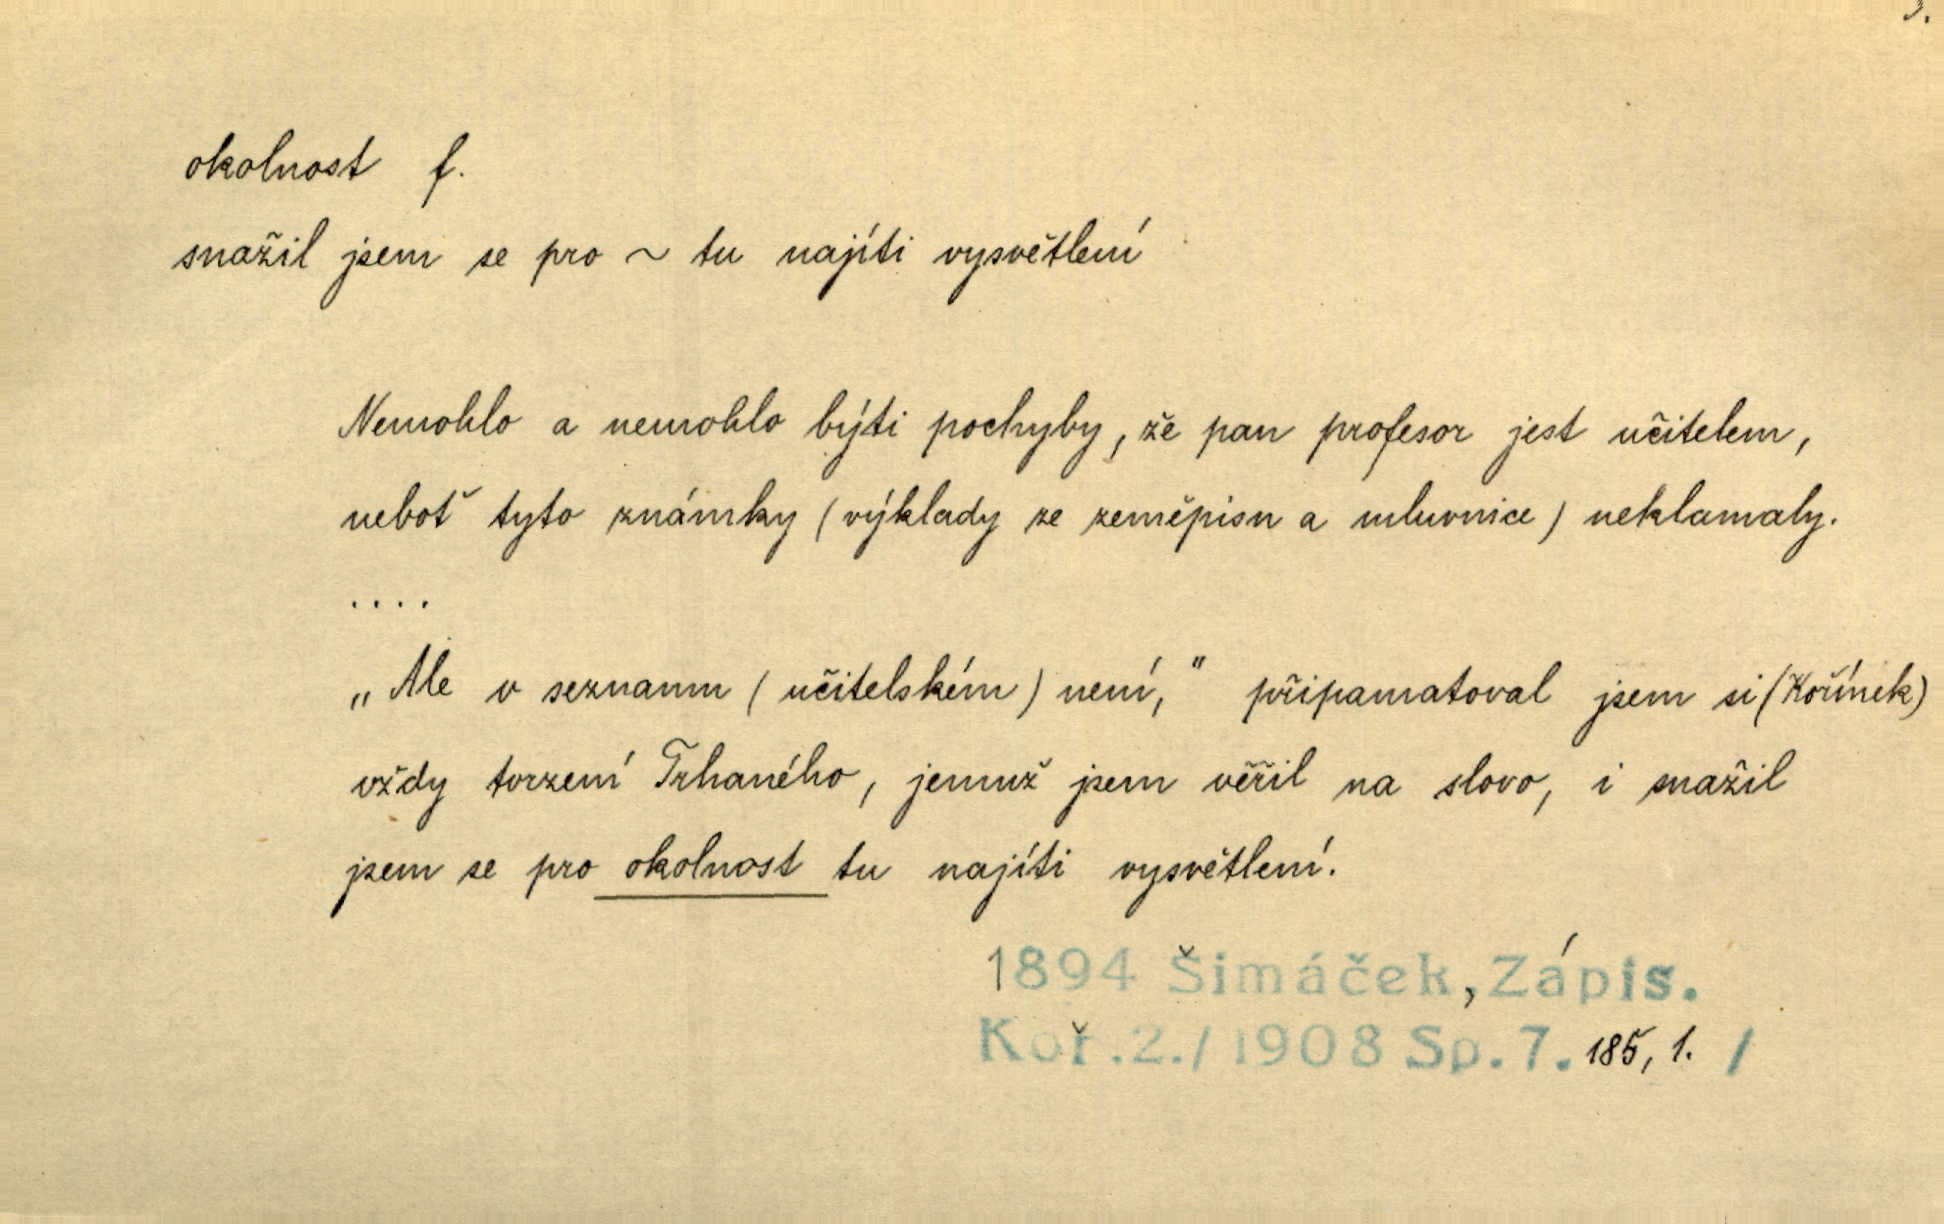 okolnost f.
snažil jsem se pro ~ tu najíti vysvětlení
Nemohlo a nemohlo býti pochyby, že pan profesor jest učitelem,
neboť tyto známky (výklady ze zeměpisu a mluvnice) neklamaly.
....
„Ale v seznamu (učitelském) není,“ připamatoval jsem si (Kořínek)
vždy tvrzení Trhaného, jemuž jsem věřil na slovo, i snažil
jsem se pro okolnost tu najíti vysvětlení.
1894 Šimáček, Zápis.
Koř.2./1908 Sp.7. 185, 1. /